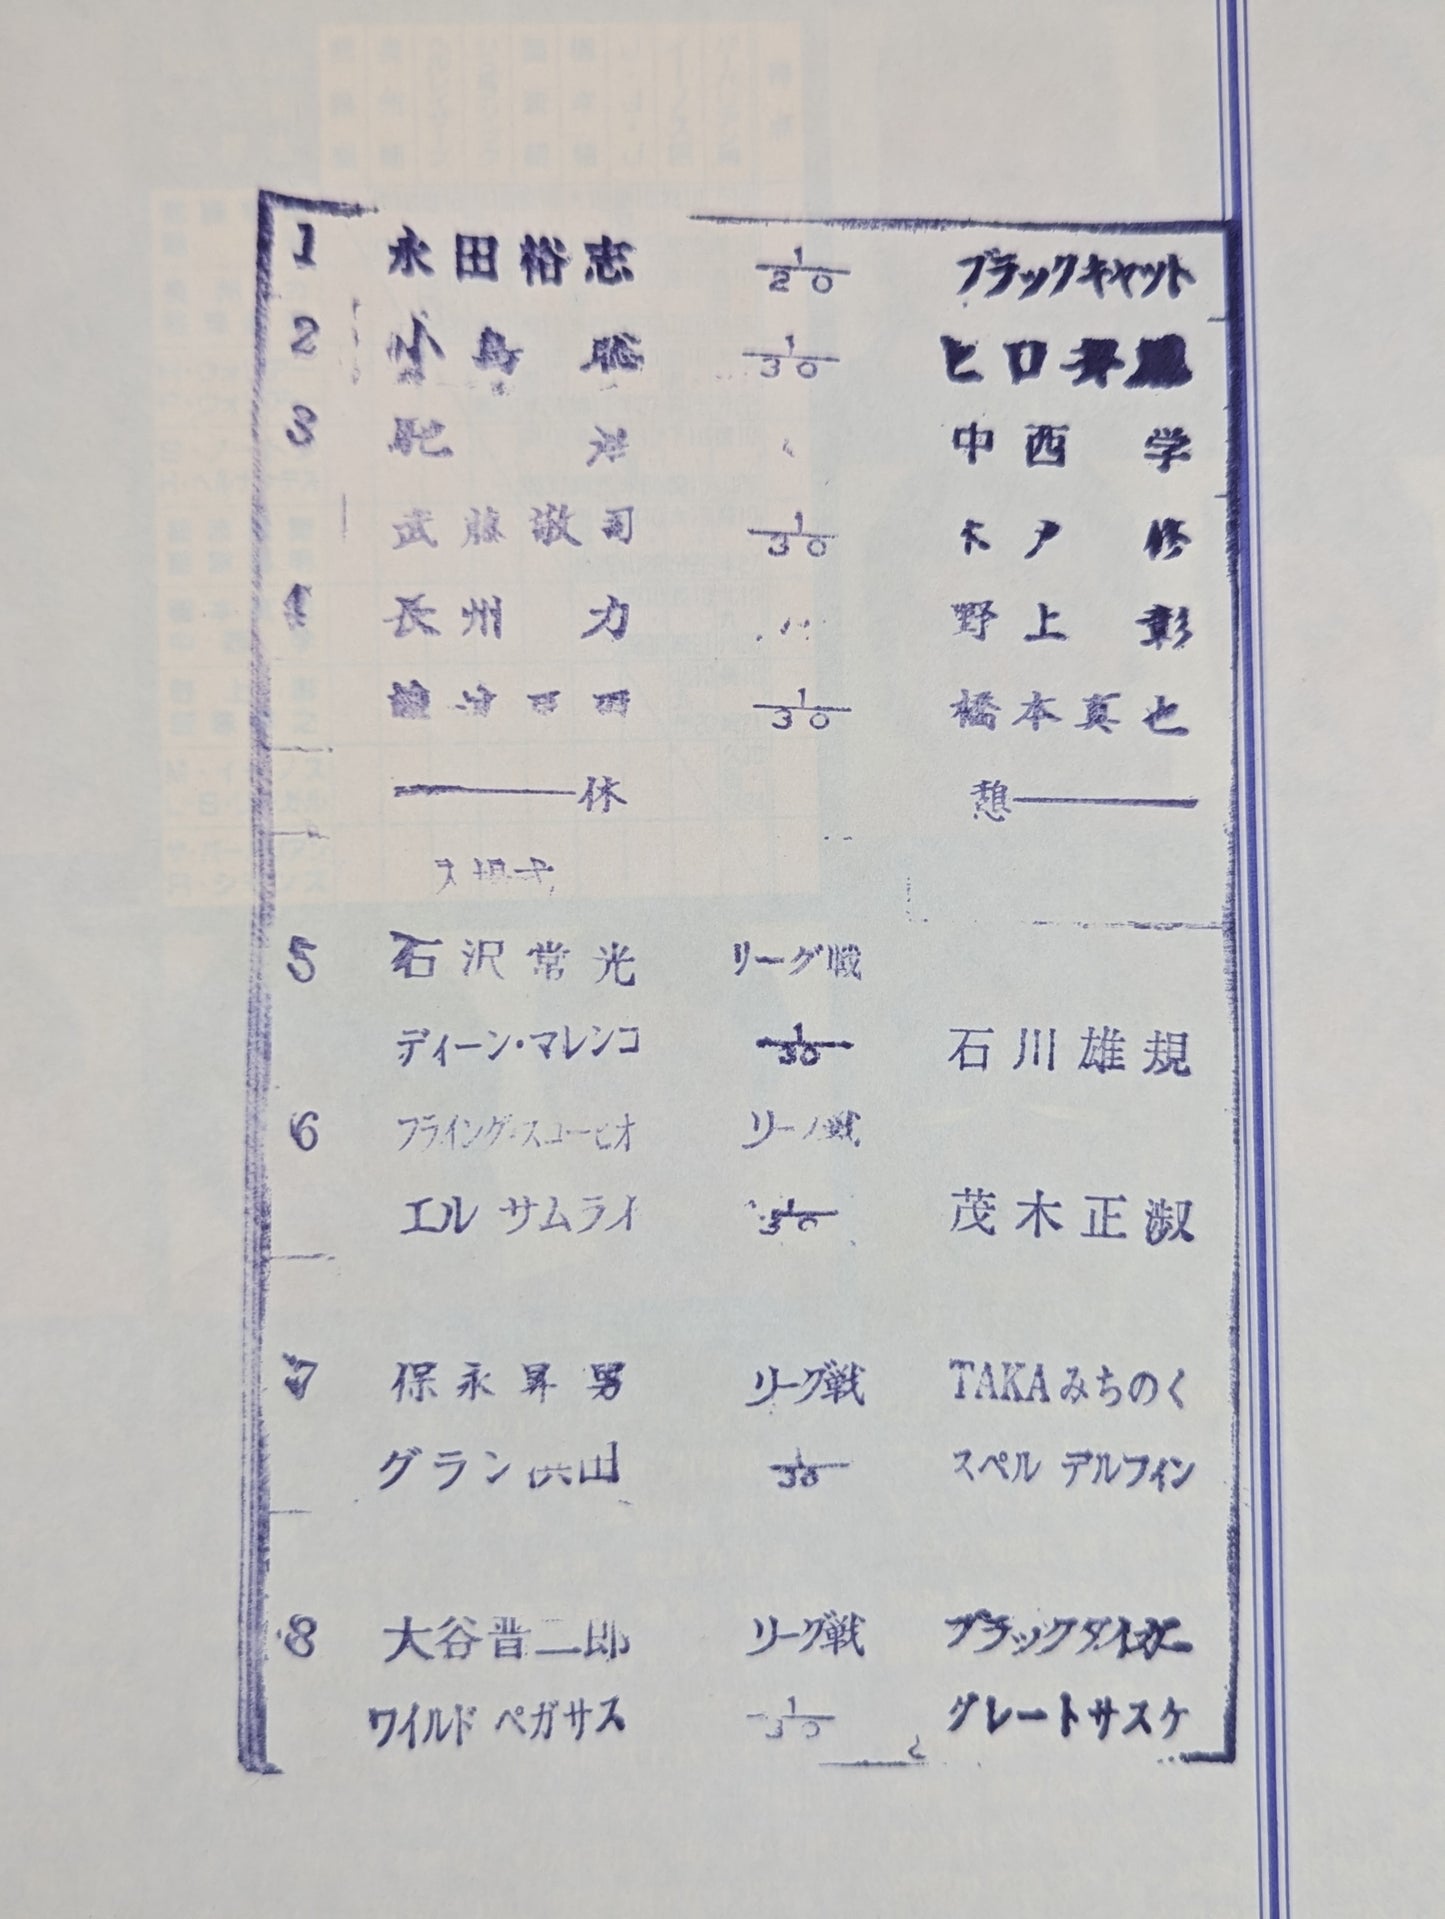 1 永田裕志 1/20 ブラックキャット
2 小島 聡 1/30 ヒロ斉藤
3 馳 浩 中西 学
武藤敬司 1/30 木戸 修
4 長州 力 野上 彰
1/30 橋本真也
休 憩
入場式
5 石沢常光 リーグ戦
ディーン・マレンコ 1/30 石川雄規
6 フライング・スコーピオ リーグ戦
エル サムライ 1/30 茂木正淑
7 保永昇男 リーグ戦 TAKAみちのく
グラン浜田 1/30 スペル デルフィン
8 大谷晋二郎 リーグ戦 ブラックタイガー
ワイルド ペガサス 1/30 グレートサスケ